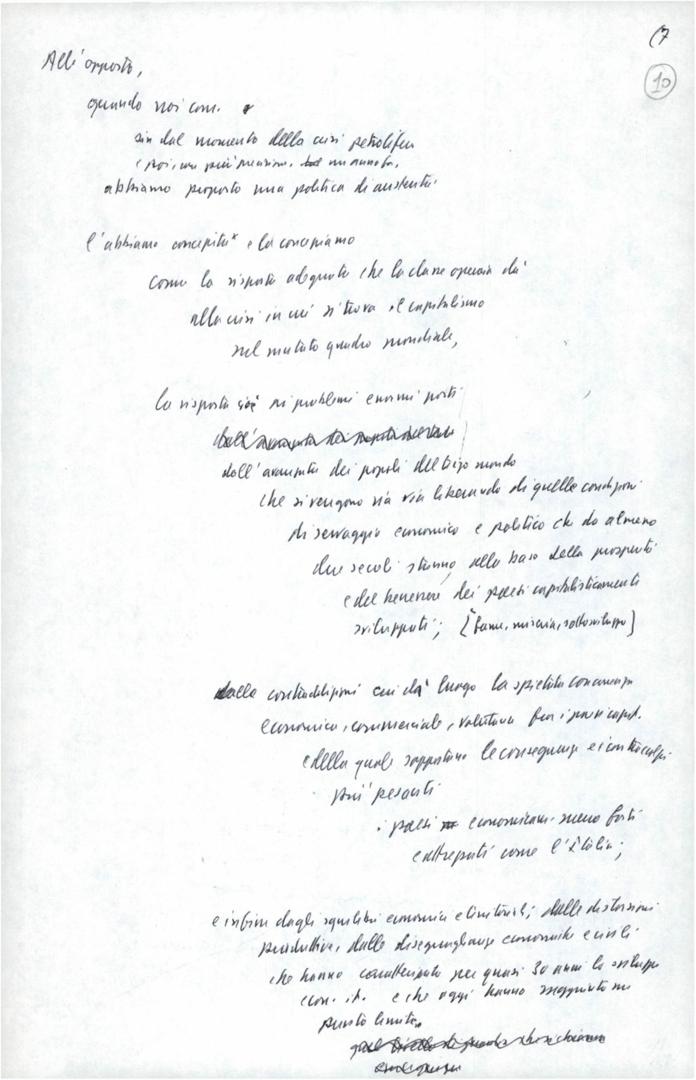 17
10
All'opposto,
quando noi com.
sin dal momento della crisi petrolifera
e poi, con più precisione,
abbiamo proposto una politica di austerità
l'abbiamo concepita e la concepiamo
come la risposta adeguata che la classe operaia dà
alla crisi in cui si trova il capitalismo
nel mutato quadro mondiale,
la risposta cioè ai problemi enormi posti
dall'avanzata dei popoli del terzo mondo
che si vengono via via liberando di quelle condizioni
di servaggio economico e politico che da almeno
due secoli stanno alla base della prosperità
e del benessere dei paesi capitalisticamente
sviluppati; [fame, miseria, sottosviluppo]
dalle contraddizioni cui dà luogo la spietata concorrenza
economica, commerciale, valutaria fra i paesi capit.
e della quale sopportano le conseguenze e i contraccolpi
più pesanti
i paesi economicam. meno forti
e attrezzati come l'Italia;
e infine dagli squilibri economici e territoriali; dalle distorsioni
produttive, dalle diseguaglianze economiche e civili
che hanno caratterizzato per quasi 30 anni lo sviluppo
econ. it. e che oggi hanno raggiunto un
punto limite.